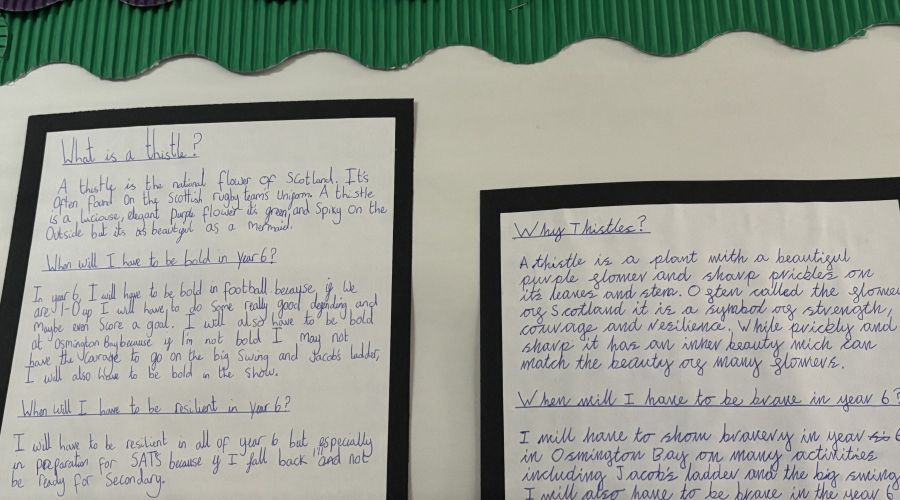 What is a thistle?
A thistle is the national flower of Scotland. It's
often found on the Scottish rugby team's uniform. A thistle
is a luciouse, elegant purple flower it's green, and spiky on the
outside but its as beautiful as a mermaid.
When will I have to be bold in year 6?
In year 6, I will have to be bold in football because, if we
are 1-0 up I will have to do some really good defending and
maybe even score a goal. I will also have to be bold
at Osmington Bay because if I'm not bold I may not
have the courage to go on the big swing and Jacob's ladder,
I will also have to be bold in the show.
When will I have to be resilient in year 6?
I will have to be resilient in all of year 6 but especially
in preparation for SATS because if I fall back and not
be ready for Secondary.
Why Thistles?
A thistle is a plant with a beautiful
purple flower and sharp prickles on
its leaves and stem. Often called the flower
of Scotland it is a symbol of strength,
courage and resilience. While prickly and
sharp it has an inner beauty wich can
match the beauty of many flowers.
When will I have to be brave in year 6?
I will have to show bravery in year 6
in Osmington Bay on many activities
including Jacob's ladder and the big swing
I will also have to be brave in the year 6